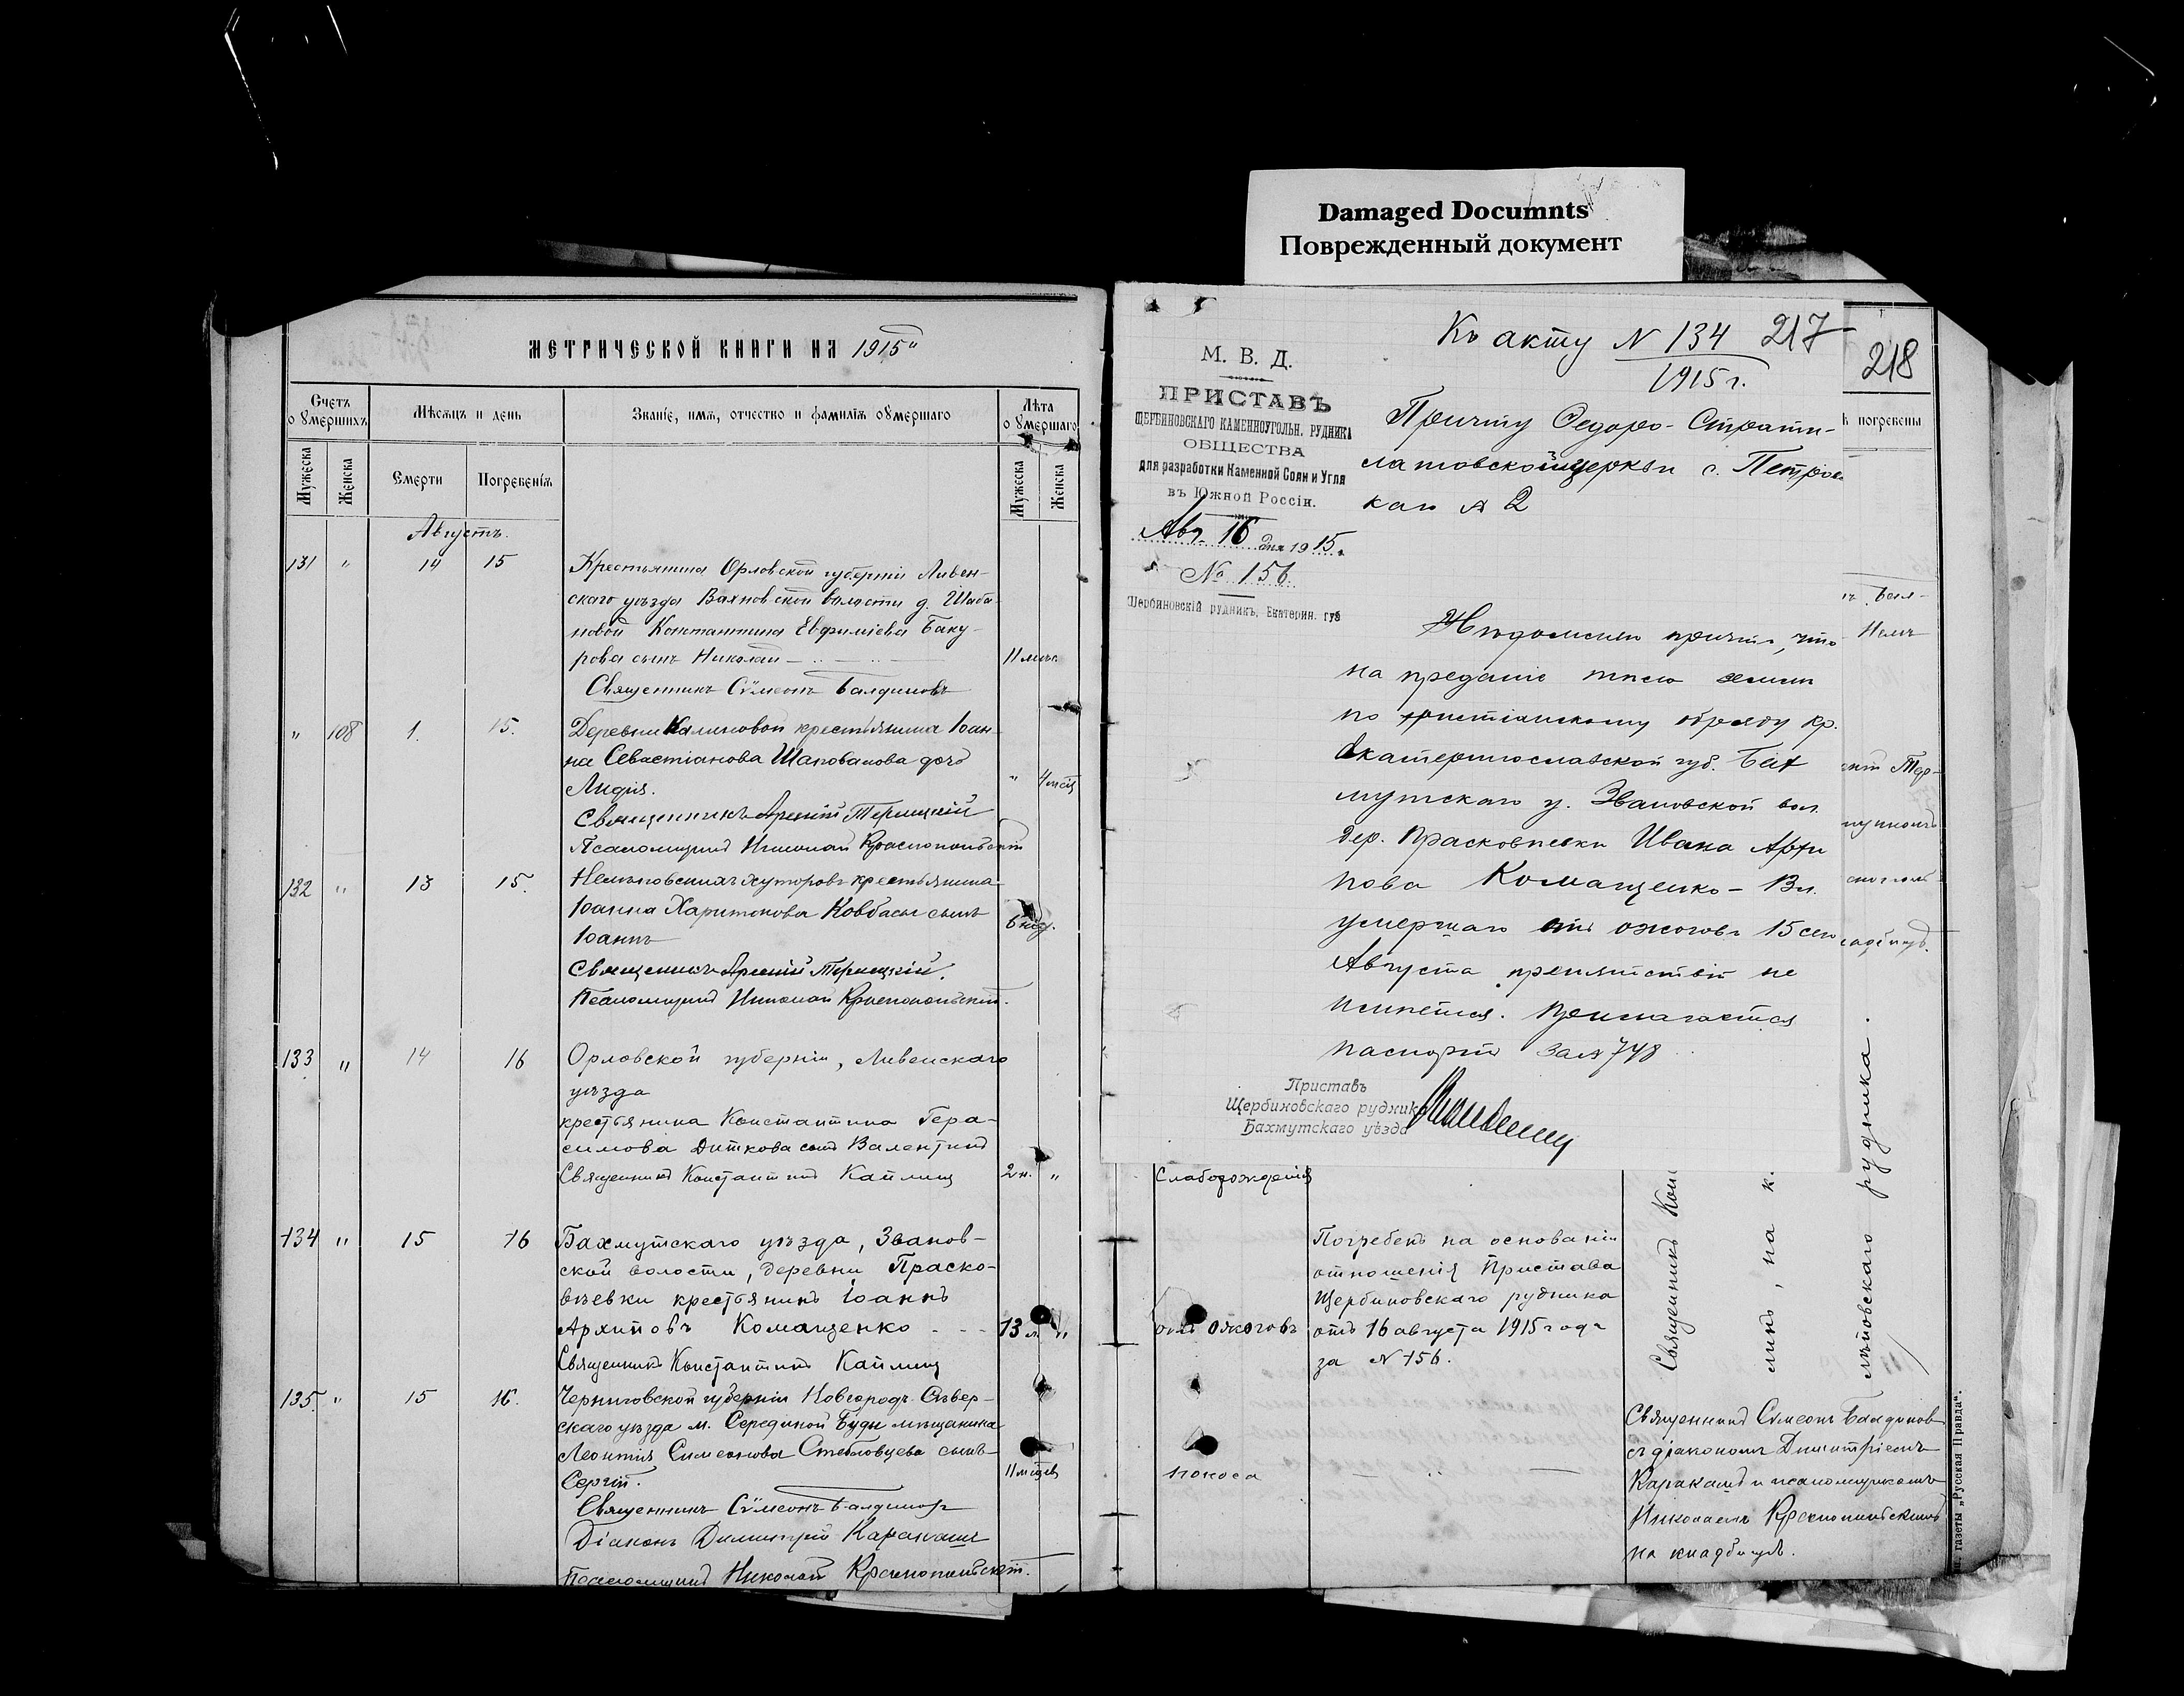 Damaged Documnts
Поврежденный документ
МЕТРИЧЕСКОЙ КНИГИ НА 1915
Счетъ о умершихъ
Мѣсяцъ и день
Званіе, имя, отчество и фамилія умершаго
Лѣта о умершаго
Мужеска
Женска
Смерти
Погребенія
Мужеска
Женска
Августъ.
131 " 14 15 Крестьянина Орловской губерніи Ливен-
скаго уѣзда Вахновской волости д. Шаба-
новой Константина Евфиміева Баку-
рова сынъ Николай 11 мѣс.
Священникъ Сумеонъ Балдиновъ
" 108 1. 15. Деревни Калиновой крестьянина Іоан-
на Севастіанова Шаповалова дочь
Лидія. " 4 мѣсц
Священникъ Арсеній Терлецкій
Псаломщикъ Николай Краснопольскій
132 " 13 15. Нелѣповскихъ хуторовъ крестьянина
Іоанна Харитонова Ковбасы сынъ
Іоаннъ 6 нед.
Священникъ Арсеній Терлецкій.
Псаломщикъ Николай Краснопольскій.
133 " 14 16 Орловской губерніи, Ливенскаго
уѣзда
крестьянина Константина Гера-
симова Диткова сынъ Валентинъ
Священникъ Константинъ Каплинъ 2 н. "
134 " 15 16 Бахмутскаго уѣзда, Званов-
ской волости, деревни Праско-
вѣевки крестьянинъ Іоаннъ
Архиповъ Комащенко - - - 13 л. "
Священникъ Константинъ Каплинъ
135. " 15 16. Черниговской губерніи Новгородъ-Сѣвер-
скаго уѣзда м. Середйной Буды мѣщанина
Леонтія Симеонова Стебловцева сынъ
Сергій. 11 мѣсцев
Священникъ Сумеонъ Балдиновъ
Діаконъ Димитрій Каракашъ
Псаломщикъ Николай Краснопольскій.
Къ акту N 134 217
1915 г.
М. В. Д.
ПРИСТАВЪ
ЩЕРБИНОВСКАГО КАМЕННОУГОЛЬН. РУДНИКА
ОБЩЕСТВА
для разработки Каменной Соли и Угля
въ Южной Россіи.
Авг. 16 дня 1915 г.
№ 156.
Щербиновскій рудникъ, Екатерин. губ
Причту Федоро-Страти-
латовской церкви с. Петров-
каго
Увѣдомляю причтъ, что
на преданіе тѣла земли
по христіанскому обряду кр.
Екатеринославской губ. Бах
мутскаго у. Звановской вол.
дер. Прасковѣевки Ивана Архи
пова Комащенко - 13 л.
умершаго отъ ожоговъ 15 сего
Августа препятствій не
имѣется. Прилагается
паспортъ за № 748
Приставъ
Щербиновскаго рудника
Бахмутскаго уѣзда
218
погребены
Слаборожденія
отъ ожоговъ
Погребенъ на основаніи
отношенія Пристава
Щербиновскаго рудника
отъ 16 августа 1915 года
за N 156.
поноса
Священникъ
, на к.
рудника.
Священникъ Сумеонъ Балдиновъ
съ діакономъ Димитріемъ
Каракашъ и псаломщикомъ
Николаемъ Краснопольскимъ
на кладбищѣ.
газеты „Русская Правда“.